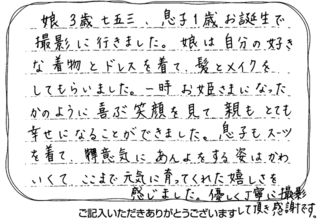 娘3歳七五三、息子1歳お誕生で
撮影に行きました。娘は自分の好き
な着物とドレスを着て、髪とメイクを
してもらいました。一時お姫さまになった
かのように喜ぶ笑顔を見て、親もとても
幸せになることができました。息子もスーツ
を着て、得意気にあんよをする姿はかわ
いくて、ここまで元気に育ってくれた嬉しさを
感じました。優しく丁寧に撮影
して頂き感謝です。
ご記入いただきありがとうございます